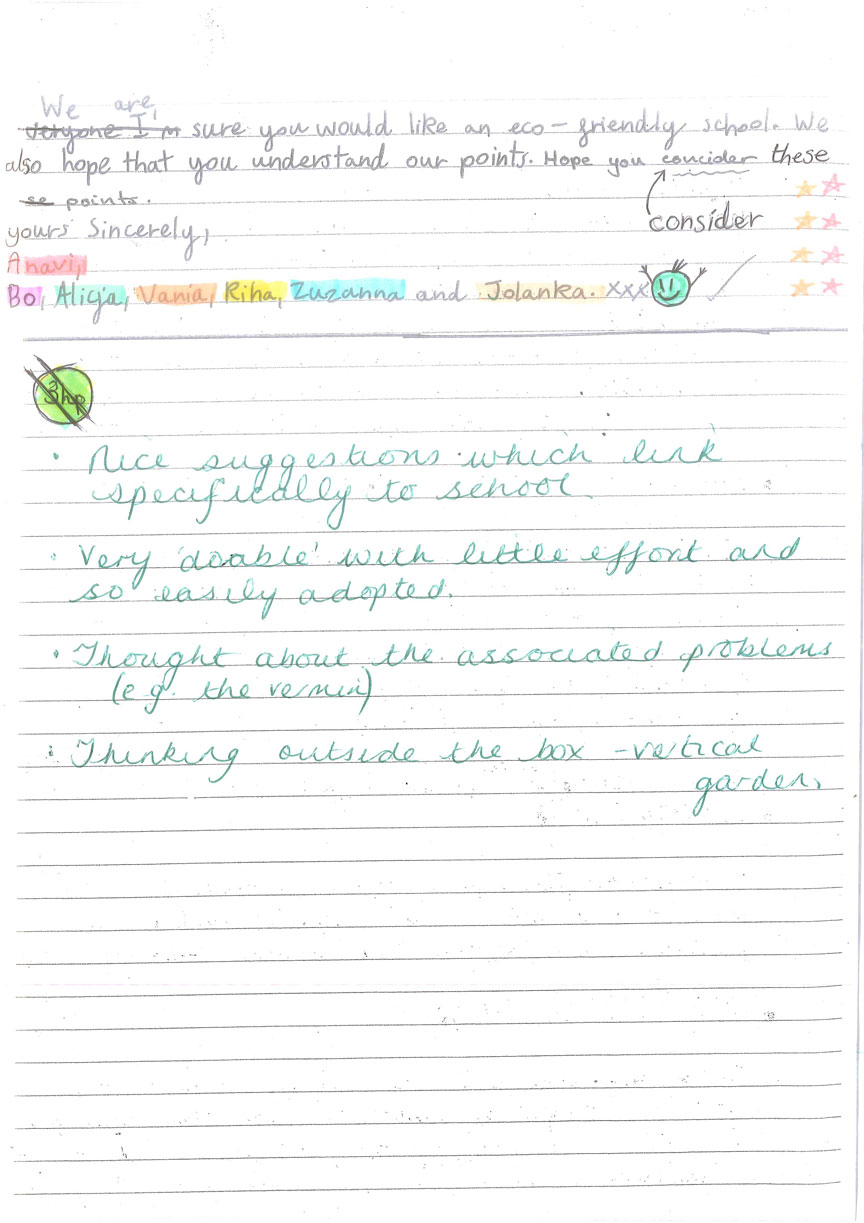 We are,
veryone I'm sure you would like an eco-friendly school. We
also hope that you understand our points. Hope you concider these
se points.
consider
yours Sincerely,
Anavi,
Bo, Alicja, Vania, Riha, Zuzanna and Jolanka. xxx
3hp
• Nice suggestions which link
specifically to school.
• Very 'doable' with little effort and
so easily adopted.
• Thought about the associated problems
(e.g. the vermin)
• Thinking outside the box - vertical
garden.